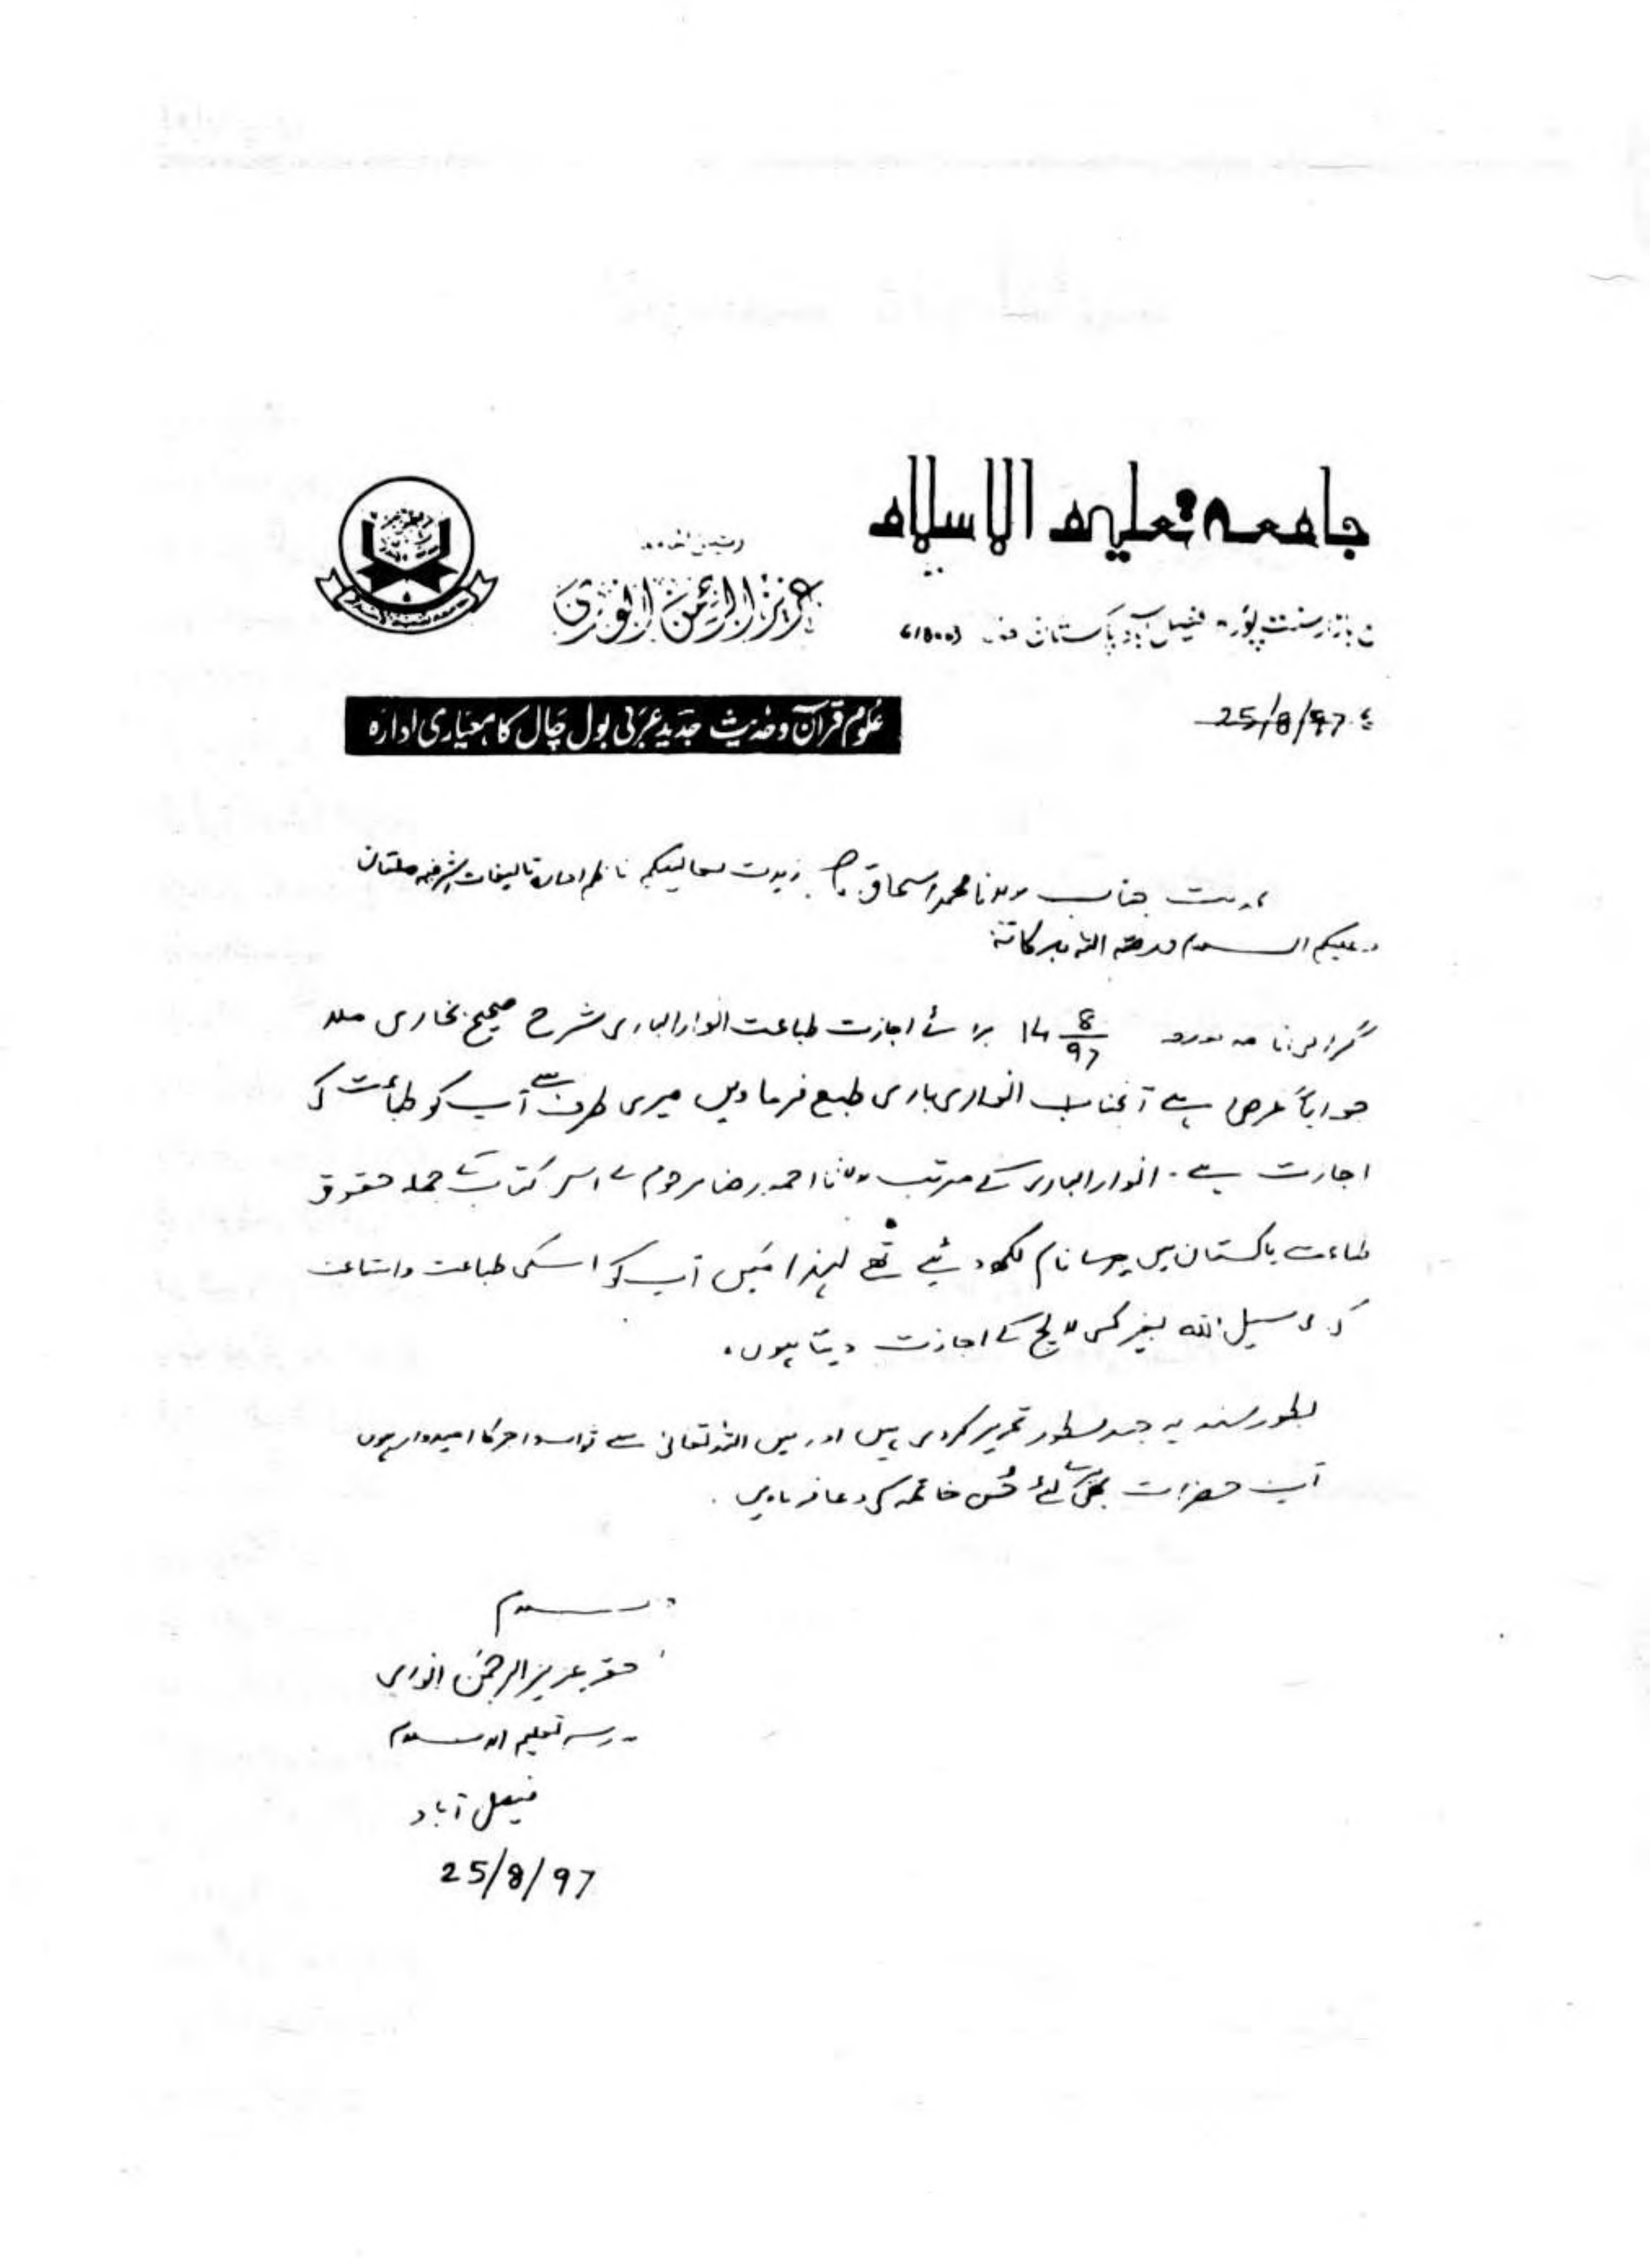 جامعہ تعلیم الاسلام
رئیس الجامعہ
عزیز الرحمٰن انوری
بازار سنت پورہ فیصل آباد پاکستان فون
25/8/97
علوم قرآن و حدیث جدید عربی بول چال کا معیاری ادارہ
جناب مولانا محمد اسحاق زیدت معالیکم ناظم ادارہ تالیفات اشرفیہ ملتان
وعلیکم السلام ورحمۃ اللہ وبرکاتہ
گرامی نامہ مورخہ 14 8/97 برائے اجازت طباعت انوار الباری شرح صحیح بخاری ملا
جواباً عرض ہے آنجناب انوار الباری طبع فرما دیں میری طرف سے آپ کو طباعت کی
اجازت ہے۔ انوار الباری کے مرتب مولانا احمد رضا مرحوم نے اس کتاب کے جملہ حقوق
طباعت پاکستان میں میرے نام لکھ دئیے تھے لہذا میں آپ کو اسکی طباعت واشاعت
کی فی سبیل اللہ بغیر کسی لالچ کے اجازت دیتا ہوں۔
بطور سند یہ چند سطور تحریر کردی ہیں اور میں اللہ تعالیٰ سے ثواب واجر کا امیدوار ہوں
آپ حضرات لئے حُسن خاتمہ کی دعا فرماویں۔
والسلام
احقر عزیز الرحمٰن انوری
مدرسہ تعلیم الاسلام
فیصل آباد
25/8/97